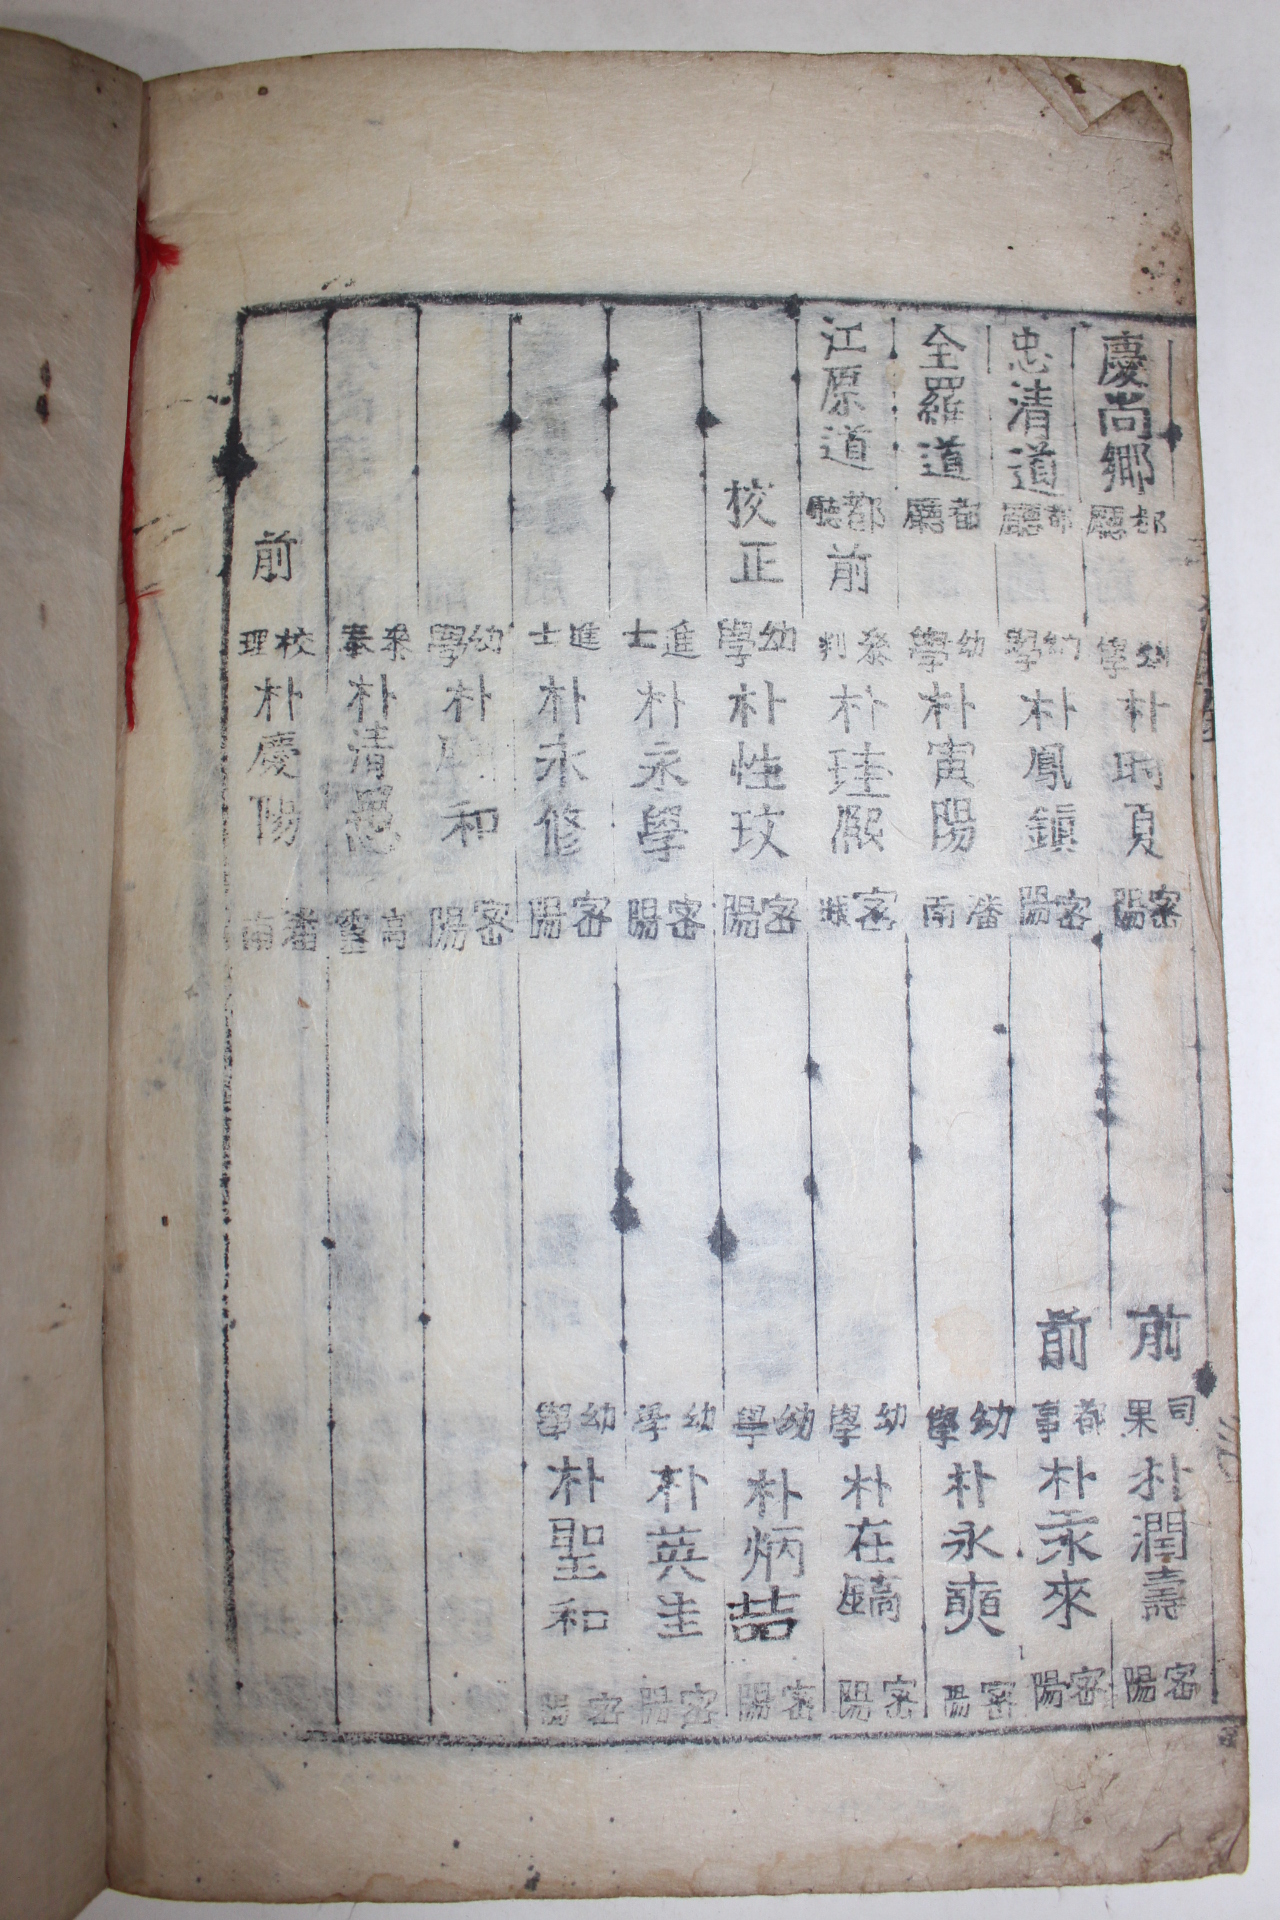 慶尚鄕都廳 幼學朴時夏密陽 前司果朴潤壽密陽
忠清道都廳 幼學朴鳳鎭密陽 前都事朴禾來密陽
全羅道都廳 幼學朴寅陽潘南 幼學朴永奭密陽
江原道都廳 前參判朴珪熙密城 幼學朴在鎬密陽
校正 幼學朴性玟密陽 幼學朴炳喆密陽
進士朴永學密陽 幼學朴英圭密陽
進士朴永修密陽 幼學朴聖和密陽
幼學朴 和密陽
參奉朴清 高靈
前校理朴慶陽潘南